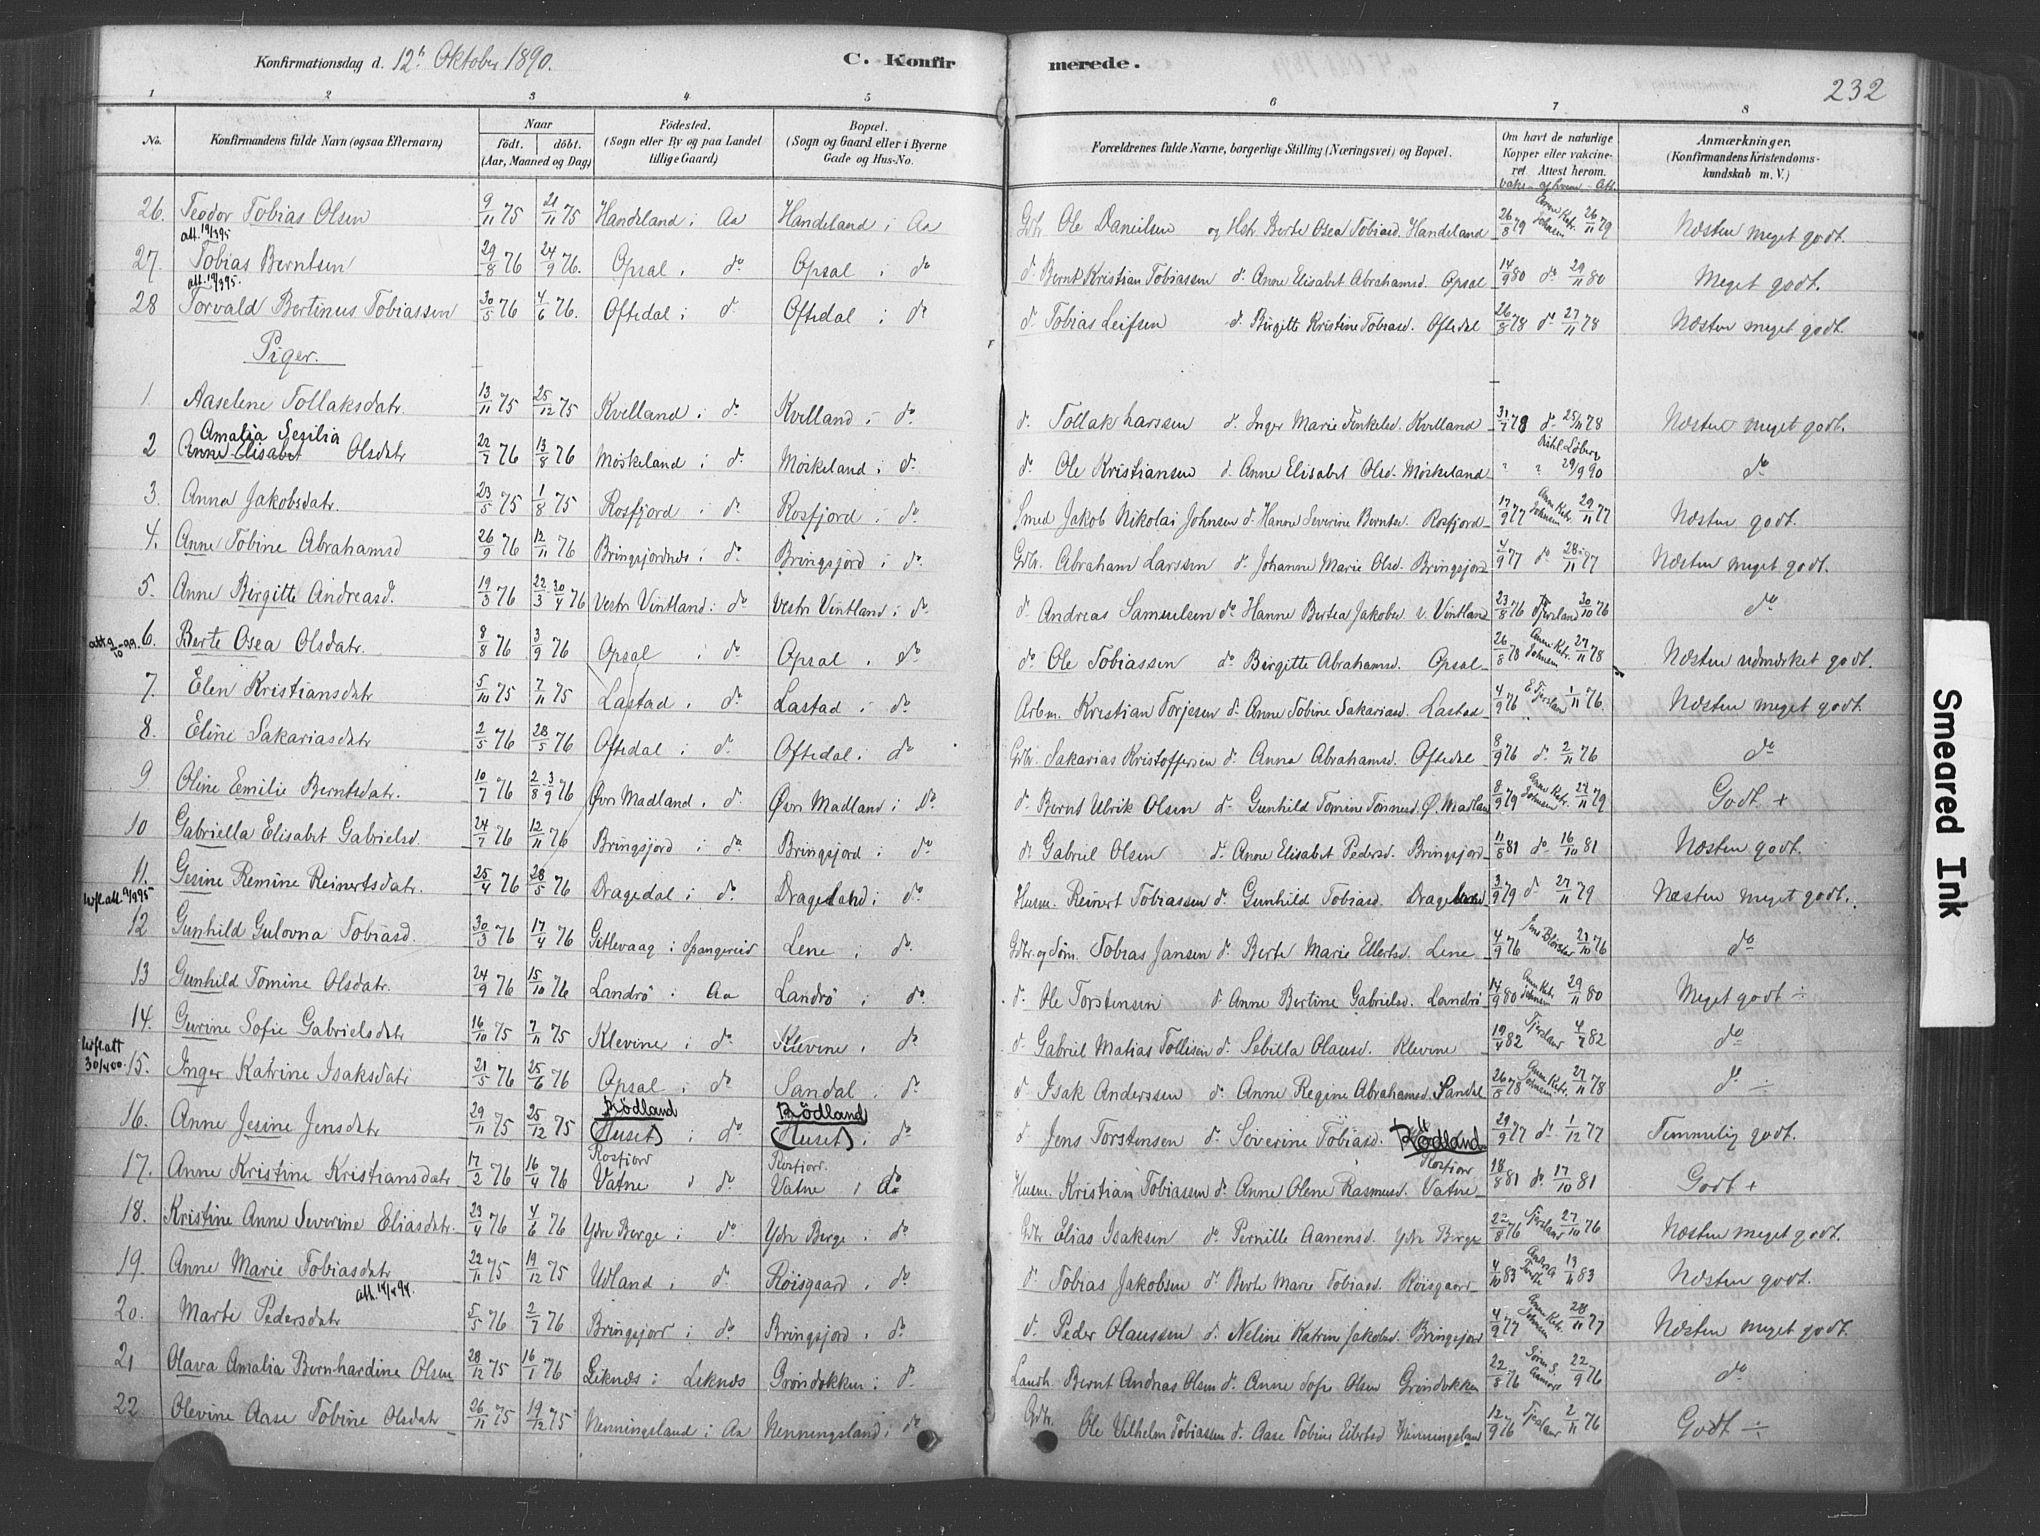 Konfirmationsdag d. 12te Oktober 1890. C. Konfirmerede. 232
1 2 3 4 5 6 7 8
No. Konfirmandens fulde Navn (ogsaa Efternavn) Naar födt. döbt. (Aar, Maaned og Dag) Födested. (Sogn eller By og paa Landet tillige Gaard) Bopæl. (Sogn og Gaard eller i Byerne Gade og Hus-No. Forældrenes fulde Navne, borgerlige Stilling (Næringsvei) og Bopæl. Om havt de naturlige Kopper eller vakcineret. Attest herom. Anmærkninger. (Konfirmandens Kristendomskundskab m. V.)
26. Teodor Tobias Olsen 9/11 75 21/11 75 Handeland i Aa Handeland i Aa Gdbr. Ole Danielsen og Hstr. Berte Osea Tobiasd. Handeland 26/8 79 26/11 79 Næsten meget godt.
att. 19/3 95
27. Tobias Berntsen 29/8 76 24/9 76. Opsal i do Opsal i do d. Bernt Kristian Tobiassen d. Anne Elisabet Abrahamsd. Opsal 14/9 80 do 29/11 80 Meget godt.
28 Torvald Bertinus Tobiassen 30/5 76 4/6 76. Oftedal i do Oftedal i do do Tobias Leifsen d. Birgitte Kristine Tobiasd. Oftedal 26/8 78 do 27/11 78 Næsten meget godt.
Piger.
1 Aaselene Tollaksdatr. 13/11 75 25/12 75 Kvilland i do Kvilland i do d. Tollak Larssen d. Inger Marie Tenkelsd. Kvilland do 25/11 78 Næsten meget godt.
Amalia Sesilia
2 Anne Elisabet Olsdatr 22/7 76 13/8 76 Möskeland i do Möskeland i do do Ole Kristiansen d. Anne Elisabet Olsd. Möskeland " " 29/9 90 do
3. Anna Jakobsdatr. 23/5 75 1/8 75 Rosfjord i do Rosfjord i do Smed Jakob Nikolai Johnsen d. Hanne Severine Berntsd. Rosfjord 17/9 77 29/11 77 Næsten godt.
4. Anne Tobine Abrahamsd 26/9 76 12/11 76 Bringsjordnes i do Bringsjord i do Gdbr. Abraham Larssen do Johanne Marie Olsd. Bringsjord 4/9 77 do 28/11 77 Næsten meget godt.
5. Anne Birgitte Andreasd. 19/3 76 22/3 - 30/4 76 Vestr Vintland i do Vestr Vintland i do d. Andreas Samuelsen do Hanne Bertea Jakobsd v. Vintland 23/8 76 30/10 76 do
6. Berte Osea Olsdatr. 8/8 76 3/9 76 Opsal i do Opsal i do do Ole Tobiassen do Birgitte Abrahamsd. Opsal 26/8 78 27/11 78 Næsten udmærket godt.
7. Elen Kristiansdatr 5/10 75 7/11 75 Lastad i do Lastad i do Arbm. Kristian Torjesen do Anne Tobine Sakariasd. Lastad 4/9 76 1/11 76. Næsten meget godt.
8. Eline Sakariasdatr 2/5 76 28/5 76 Oftedal i do Oftedal i do Gdbr. Sakarias Kristoffersen d. Anna Abrahamsd. Oftedal 8/9 76 d. 2/11 76 do
9 Oline Emilie Berntsdatr. 10/7 76 2/8 - 3/9 76 Øvr. Madland i do Øvr. Madland i do d. Bernt Ulrik Olsen do Gunhild Tomine Tönnesd. Ø. Madland 8/9 79 27/11 79 Godt +
10 Gabriella Elisabet Gabrielsd. 24/7 76 12/11 76 Bringsjord i do Bringsjord i do do Gabriel Olsen d. Anne Elisabet Pedersd. Bringsjord 11/8 81 do 16/10 81 Næsten godt.
11. Gesine Remine Reinertsdatr. 25/4 76 28/5 76 Dragedal i do Drageland i do Husm. Reinert Tobiassen do Gunhild Tobiasd. Drageland 3/9 79 do 27/11 79 Næsten meget godt.
12 Gunhild Gulovna Tobiasd. 30/3 76 17/4 76 Gitlevaag i Spangereid Lene i do Gdbr. og Söm. Tobias Jansen do Berte Marie Ellertsd. Lene 4/9 76 /10 76 do
13 Gunhild Tomine Olsdatr. 24/9 76 15/10 76 Landrö i Aa Landrö i do do Ole Torstensen do Anne Bertine Gabrielsd. Landrö 14/9 80 29/11 80 Meget godt ÷
14. Gurine Sofie Gabrielsdatr 16/10 75 7/11 75 Klevine i do Klevine i do do Gabriel Matias Tollisen do Sebilla Olausd. Klevine 19/4 82 4/7 82 do
15. Inger Katrine Isaksdatr 21/5 76 25/6 76 Opsal i do Sandal i do d Isak Anderssen do Anne Regine Abrahamsd. Sandal 26/8 78 27/11 78 do ÷
Rödland Rödland
16. Anne Jesine Jensdatr 29/11 75 25/12 75 (Huset) i do (Huset) i do d Jens Torstensen do Severine Tobiasd. Rödland 29/9 77 do 1/12 77 Temmelig godt.
Rosfjord Rosfjord Rosfjord
17. Anne Kristine Kristiansdatr 17/2 76 16/4 76 Vatne i do Vatne i do Husm. Kristian Tobiassen do Anne Olene Rasmusd. Vatne 18/8 81 do 17/10 81 Godt +
18. Kristine Anne Severine Eliasdatr. 23/4 76 4/6 76 Ydre Berge i do Ydre Berge i do Gdbr Elias Isaksen do Pernille Aanensd. Ydre Berge 22/8 76 27/10 76 Næsten meget godt.
19. Anne Marie Tobiasdatr 22/11 75 19/12 75 Udland i do Röisgaard i do d. Tobias Jakobsen do Berte Marie Tobiasd. Röisgaard 4/10 83 13/11 83 Næsten godt.
20. Marte Pedersdatr 5/5 76 2/7 76 Bringsjord i do Bringsjord i do d. Peder Olaussen d. Neline Katrine Jakobsd. Bringsjord 4/9 77 28/11 77 Næsten meget godt
21 Olava Amalia Bernhardine Olsen 28/12 75 16/1 76 Liknes i Liknes Gröndokken i do Landh. Bernt Andreas Olsen do Anne Sofie Olsen Gröndokken 22/8 76 22/9 76 do
22 Olevine Aase Tobine Olsdatr 26/11 75 19/12 75 Nenningsland i Aa Nenningsland i do Gdbr. Ole Vilhelm Tobiassen do Aase Tobine Eilertsd Nenningsland 12/9 76 2/11 76 Godt ÷
Smeared Ink